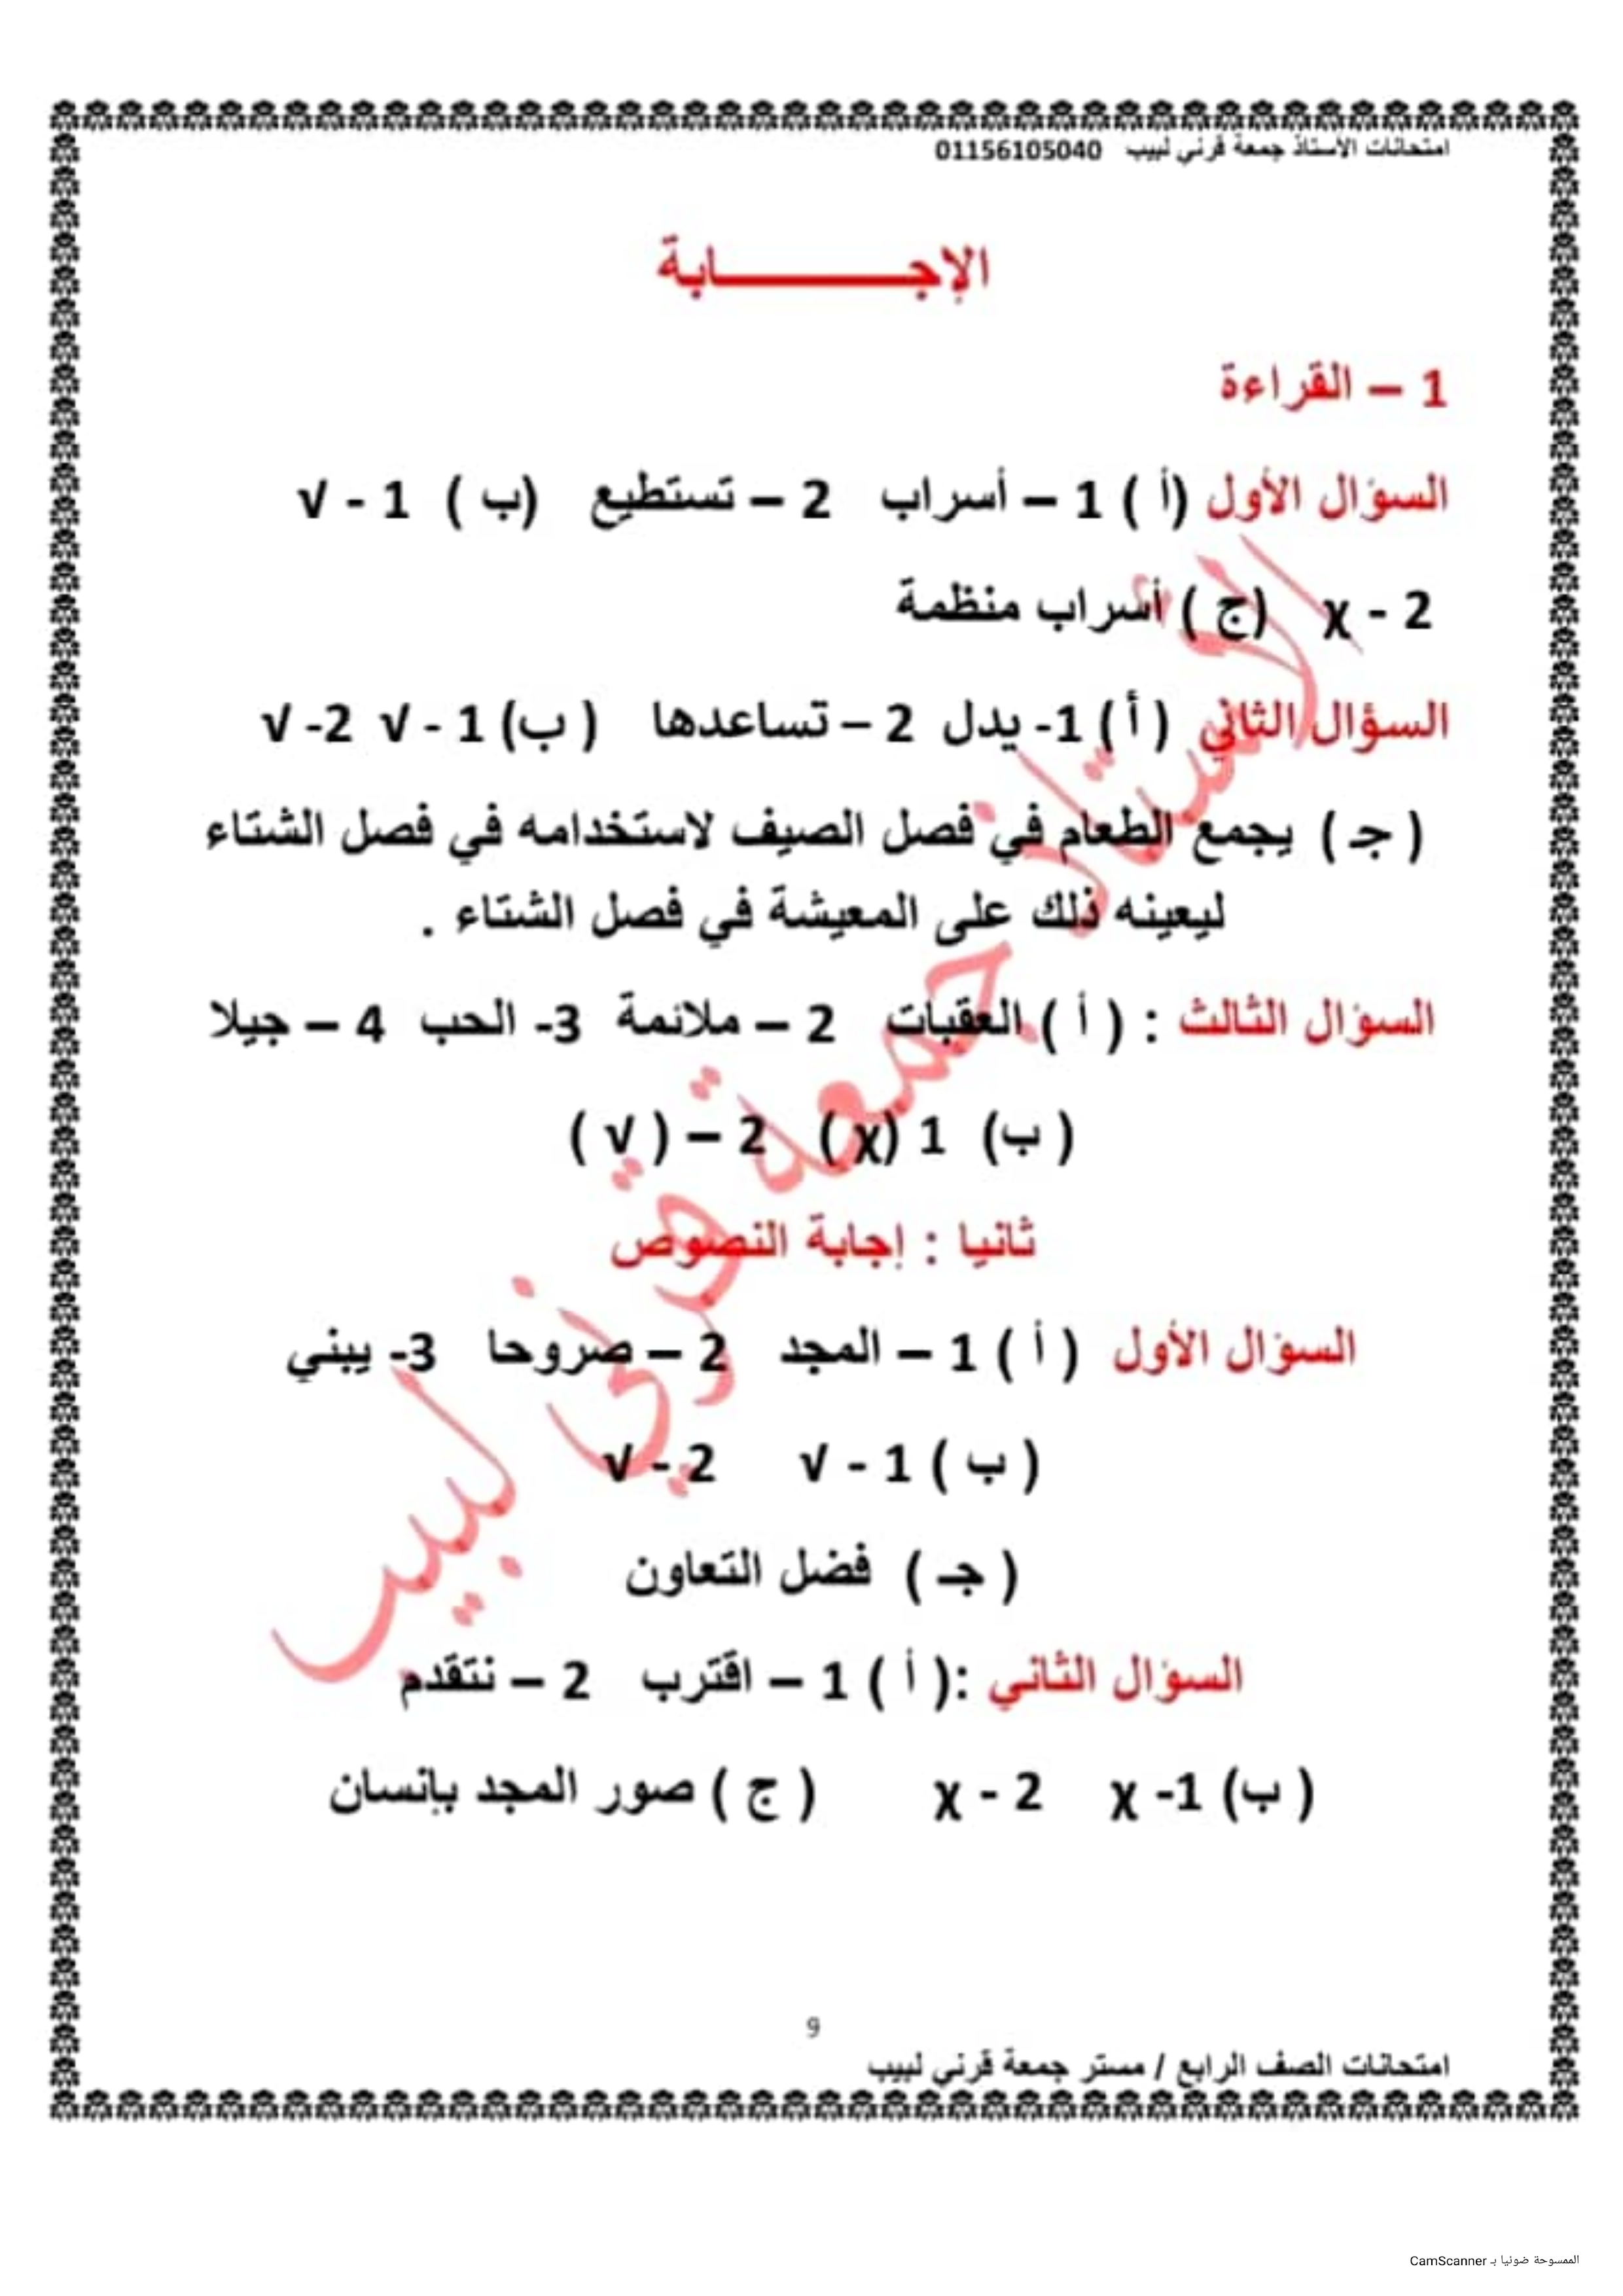 امتحانات الأستاذ جمعة قرني لبيب 01156105040
الإجـــــــــابة
1 – القراءة
السؤال الأول (أ ) 1 – أسراب 2 – تستطيع (ب ) 1 - √
2 - χ (ج ) أسراب منظمة
السؤال الثاني ( أ ) 1- يدل 2 – تساعدها ( ب) 1 - √ 2- √
( جـ ) يجمع الطعام في فصل الصيف لاستخدامه في فصل الشتاء
ليعينه ذلك على المعيشة في فصل الشتاء .
السؤال الثالث : ( أ ) العقبات 2 – ملائمة 3- الحب 4 – جيلا
( ب) 1 (χ ) 2 – ( √ )
ثانيا : إجابة النصوص
السؤال الأول ( أ ) 1 – المجد 2 – صروحا 3- يبني
( ب ) 1 - √ 2 - √
( جـ ) فضل التعاون
السؤال الثاني :( أ ) 1 – اقترب 2 – نتقدم
( ب) 1- χ 2 - χ ( ج ) صور المجد بإنسان
الأستاذ جمعة قرني لبيب
9
امتحانات الصف الرابع / مستر جمعة قرني لبيب
الممسوحة ضوئيا بـ CamScanner